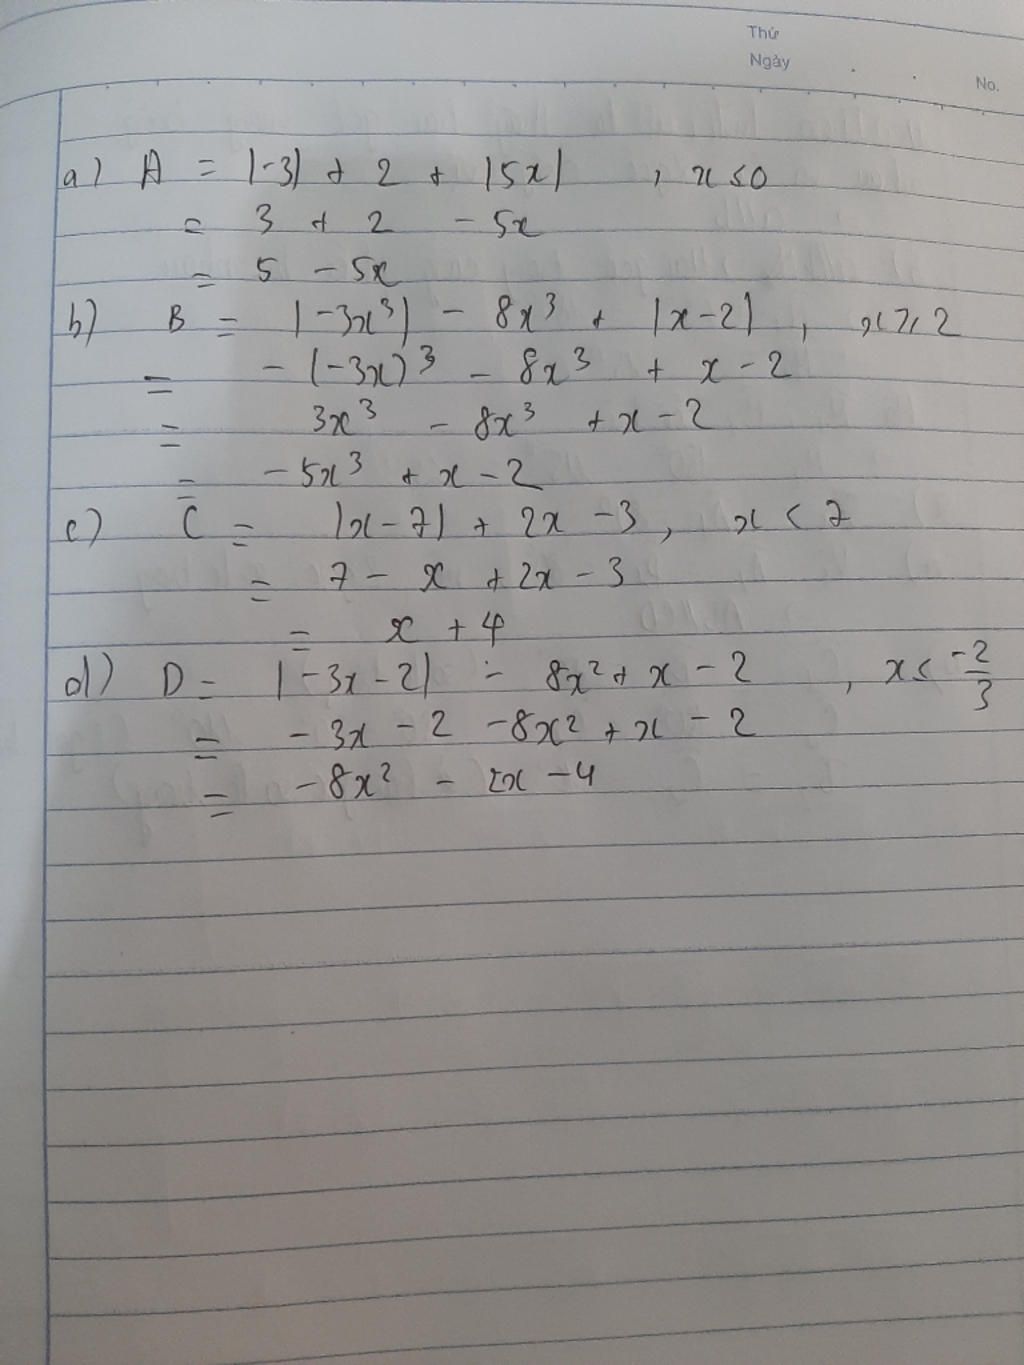 Thứ
Ngày
No.
a) A = |-3| + 2 + |5x| , x ≤ 0
= 3 + 2 - 5x
= 5 - 5x
b) B = |-3x³| - 8x³ + |x-2| , x ≥ 2
= -(-3x)³ - 8x³ + x - 2
= 3x³ - 8x³ + x - 2
= -5x³ + x - 2
c) C = |x-7| + 2x - 3 , x < 7
= 7 - x + 2x - 3
= x + 4
d) D = |-3x-2| - 8x² + x - 2 , x < -2/3
= -3x - 2 - 8x² + x - 2
= -8x² - 2x - 4